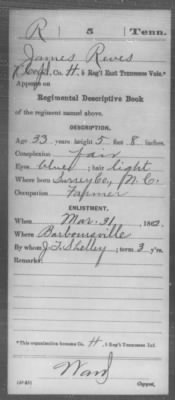 R 5 Tenn.
James Reves
Co. H, 5 Reg't East Tennessee Vols.*
Appears on
Regimental Descriptive Book
of the regiment named above.
DESCRIPTION.
Age 33 years; height 5 feet 8 inches.
Complexion Fair
Eyes blue; hair light
Where born Surrey Co, N.C.
Occupation Farmer
ENLISTMENT.
When Mar. 31, 1862.
Where Barboursville
By whom J. T. Shelley; term 3 y'rs.
Remarks:
*This organization became Co. H, 5 Reg't Tennessee Inf.
Ward
Copyist.